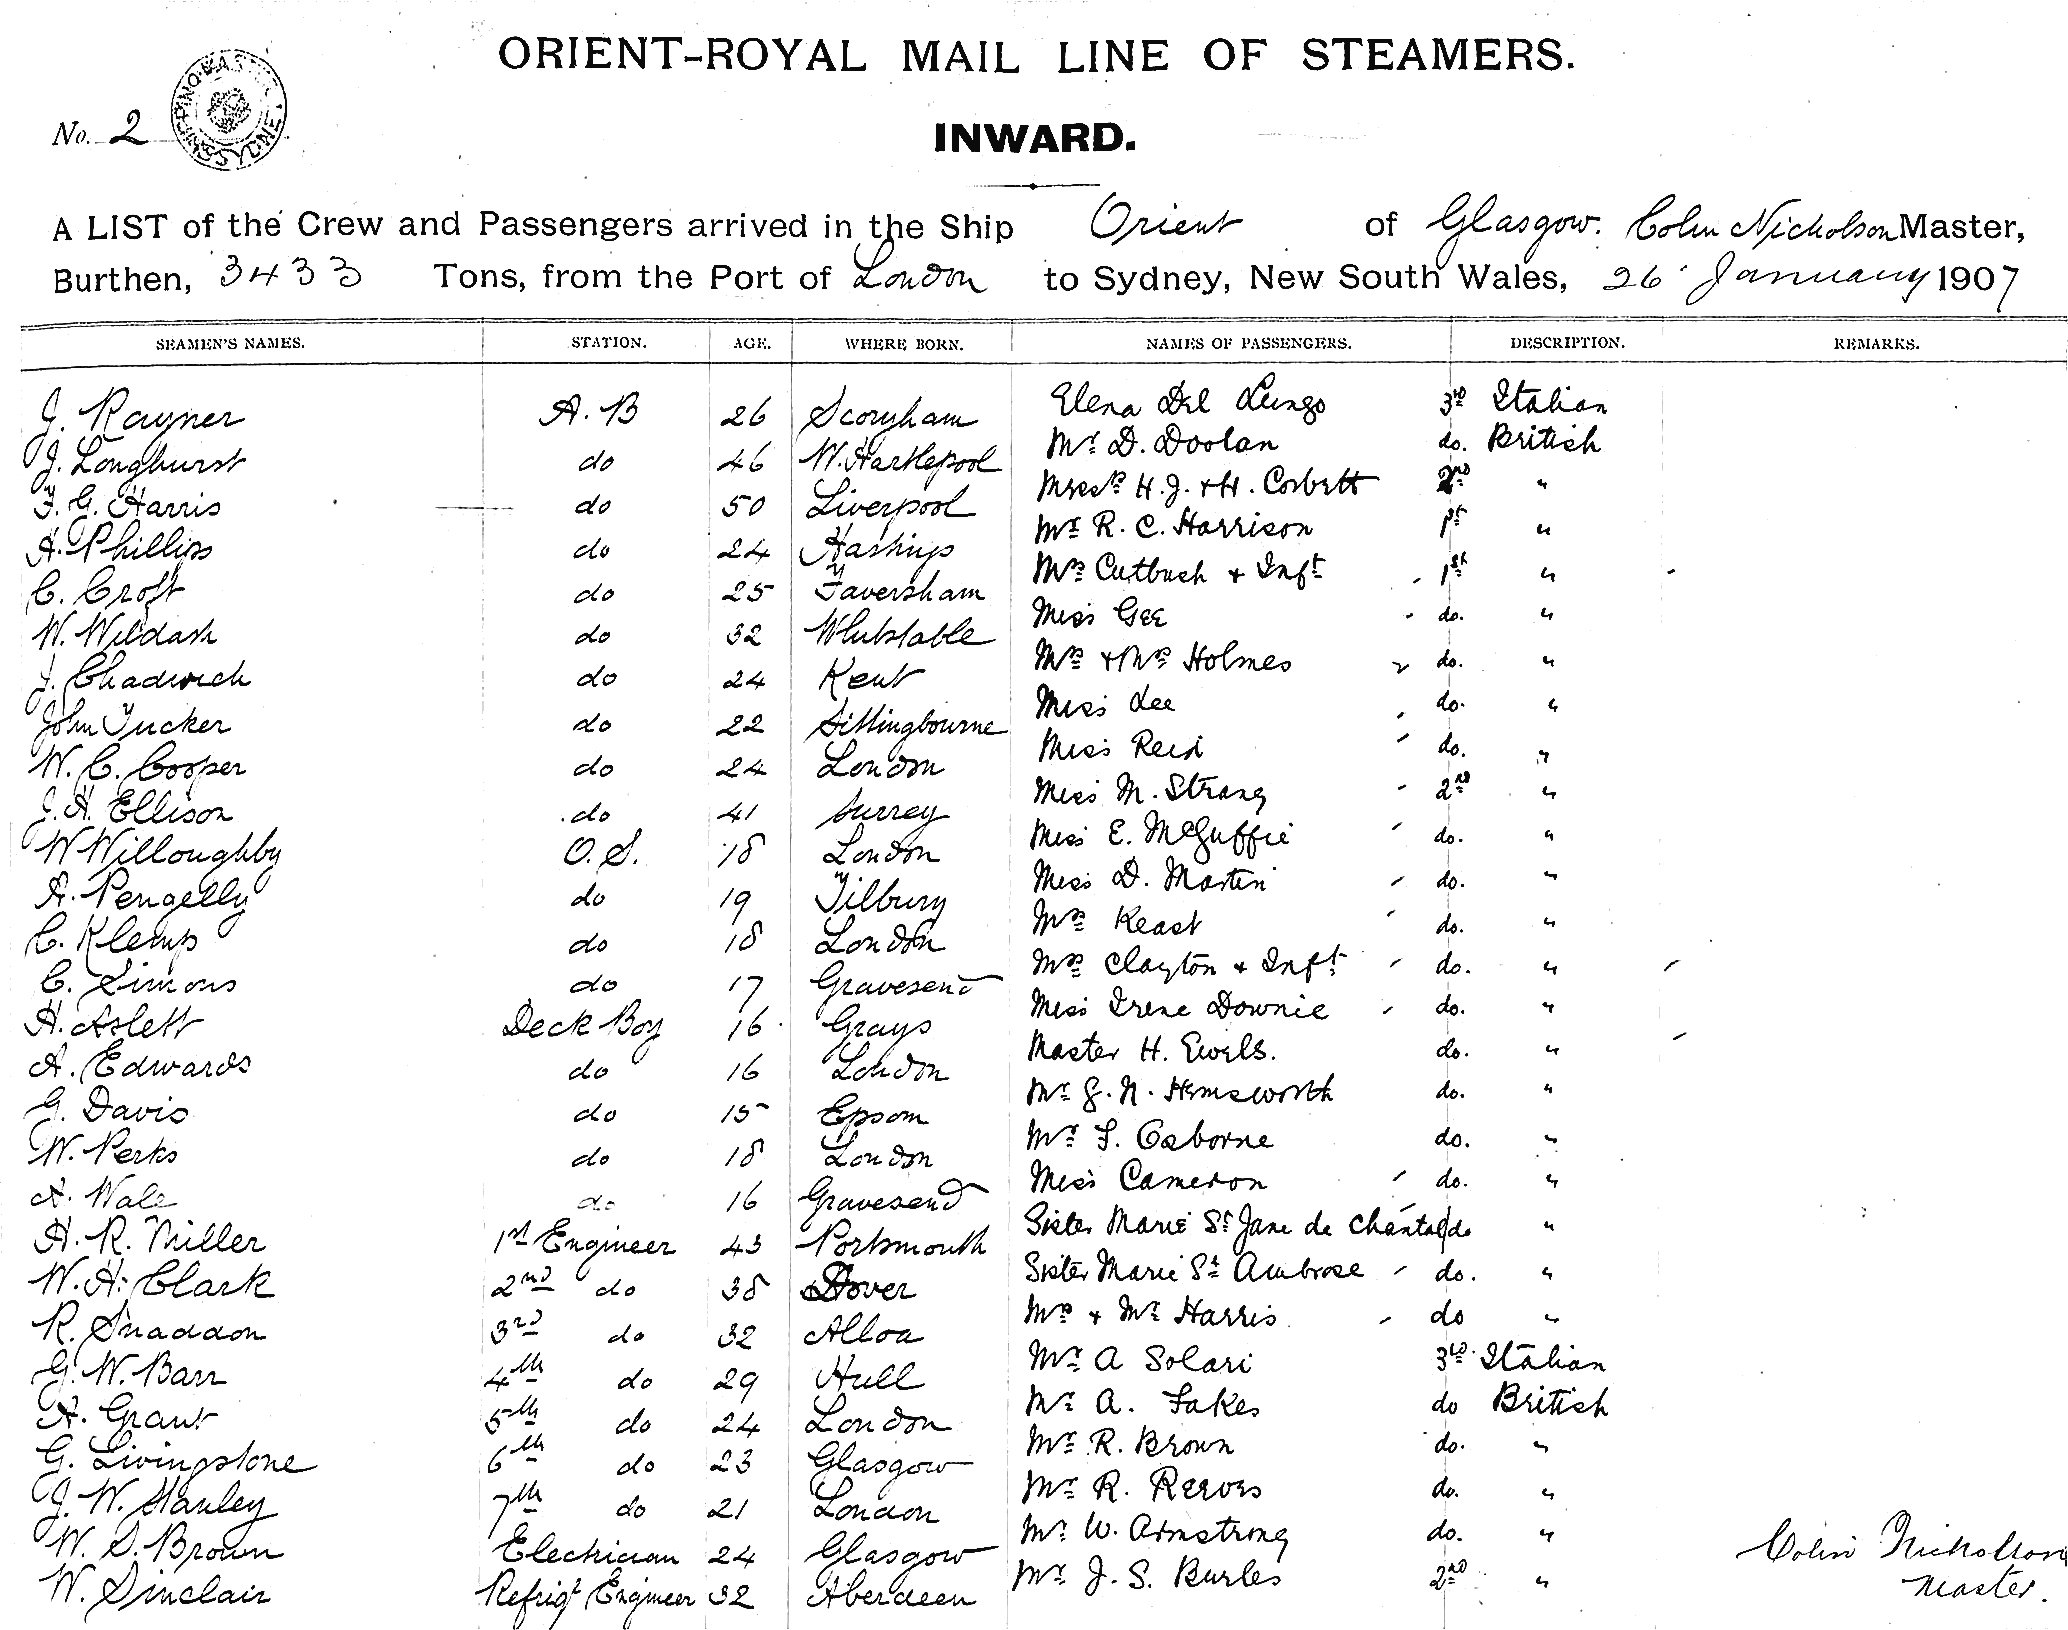 ORIENT-ROYAL MAIL LINE OF STEAMERS.
No. 2
SYDNEY
INWARD.
A LIST of the Crew and Passengers arrived in the Ship Orient of Glasgow. Colin Nicholson Master,
Burthen, 3433 Tons, from the Port of London to Sydney, New South Wales, 26 January 1907
SEAMEN'S NAMES. STATION. AGE. WHERE BORN. NAMES OF PASSENGERS. DESCRIPTION. REMARKS.
J. Rayner A. B 26 Elena Del Lungo 3rd Italian
J. Longhurst do 46 W. Hartlepool Mr D. Doolan do. British
F. G. Harris do 50 Liverpool H. J. + H. Corbett 2nd "
A. Phillips do 24 Hastings Mr R. C. Harrison 1st "
C. Croft do 25 Faversham Mrs Cutbush + Inft 1st "
W. Wildash do 32 Whitstable Miss Gee do. "
J. Chadwick do 24 Kent Mr + Mrs Holmes do. "
John Tucker do 22 Sittingbourne Miss Lee do. "
W. C. Cooper do 24 London Miss Reid do. "
J. H. Ellison do 41 Surrey Miss M. Strang 2nd "
W Willoughby O. S. 18 London Miss E. McGuffie do. "
A. Pengelly do 19 Tilbury Miss D. Martin do. "
C. Klemp do 18 London Mrs Keast do. "
C. Simons do 17 Gravesend Mrs Clayton + Inft do. "
H. Aslett Deck Boy 16 Grays Miss Irene Downie do. "
A. Edwards do 16 London Master H. Ewels. do. "
G. Davis do 15 Epsom Mr G. N. Hemsworth do. "
W. Perks do 18 London Mr F. Osborne do. "
A. Wale do 16 Gravesend Miss Cameron do. "
H. R. Miller 1st Engineer 43 Portsmouth Sister Marie St Jane de Chantal do "
W. H. Clark 2nd do 38 Dover Sister Marie St Ambrose do. "
R. Snaddon 3rd do 32 Alloa Mrs + Mr Harris do "
G. W. Barr 4th do 29 Hull Mr A Solari 3rd Italian
A. Grant 5th do 24 London Mr A. Fakes do British
G. Livingstone 6th do 23 Glasgow Mr R. Brown do. "
J. W. Hanley 7th do 21 London Mr R. Reeves do. "
W. S. Brown Electrician 24 Glasgow Mr W. Armstrong do. "
W. Sinclair Refrigt Engineer 32 Aberdeen Mr J. S. Burles 2nd "
Colin Nicholson
Master.